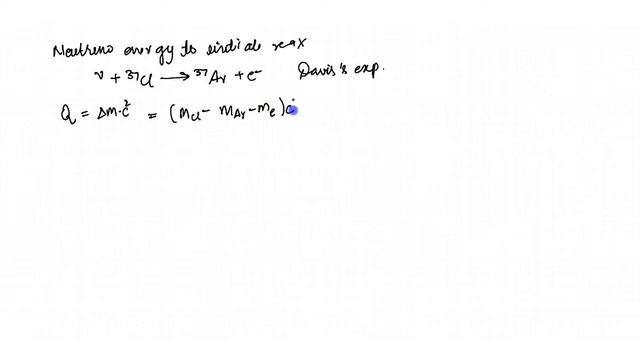 Neutreno energy to initial reax
ν + ³⁷Cl ⟶ ³⁷Ar + e⁻ Davis's exp.
Q = Δm·c² = (m_Cl − m_Ar − m_e)c